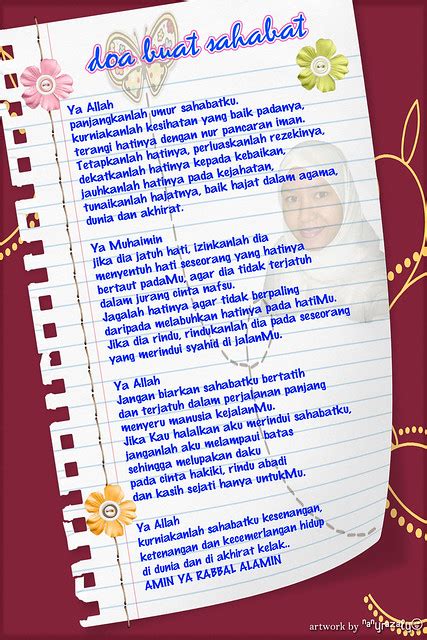 doa buat sahabat
Ya Allah
panjangkanlah umur sahabatku.
kurniakanlah kesihatan yang baik padanya,
terangi hatinya dengan nur pancaran iman.
Tetapkanlah hatinya, perluaskanlah rezekinya,
dekatkanlah hatinya kepada kebaikan,
jauhkanlah hatinya pada kejahatan,
tunaikanlah hajatnya, baik hajat dalam agama,
dunia dan akhirat.
Ya Muhaimin
jika dia jatuh hati, izinkanlah dia
menyentuh hati seseorang yang hatinya
bertaut padaMu, agar dia tidak terjatuh
dalam jurang cinta nafsu.
Jagalah hatinya agar tidak berpaling
daripada melabuhkan hatinya pada hatiMu.
Jika dia rindu, rindukanlah dia pada seseorang
yang merindui syahid di jalanMu.
Ya Allah
Jangan biarkan sahabatku bertatih
dan terjatuh dalam perjalanan panjang
menyeru manusia kejalanMu.
Jika Kau halalkan aku merindui sahabatku,
janganlah aku melampaui batas
sehingga melupakan daku
pada cinta hakiki, rindu abadi
dan kasih sejati hanya untukMu.
Ya Allah
kurniakanlah sahabatku kesenangan,
ketenangan dan kecemerlangan hidup
di dunia dan di akhirat kelak..
AMIN YA RABBAL ALAMIN
artwork by